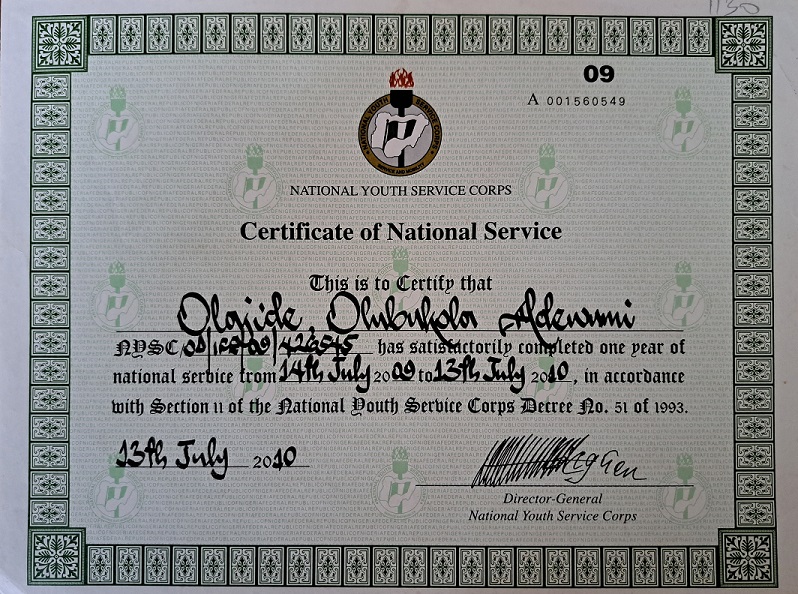 1130
09
A 001560549
NATIONAL YOUTH SERVICE CORPS
SERVICE AND HUMILITY
NATIONAL YOUTH SERVICE CORPS
Certificate of National Service
This is to Certify that
Olajide, Olubukola Aderemi
NYSC/ has satisfactorily completed one year of
national service from 14th July 2009 to 13th July 2010, in accordance
with Section 11 of the National Youth Service Corps Decree No. 51 of 1993.
13th July 2010
Director-General
National Youth Service Corps